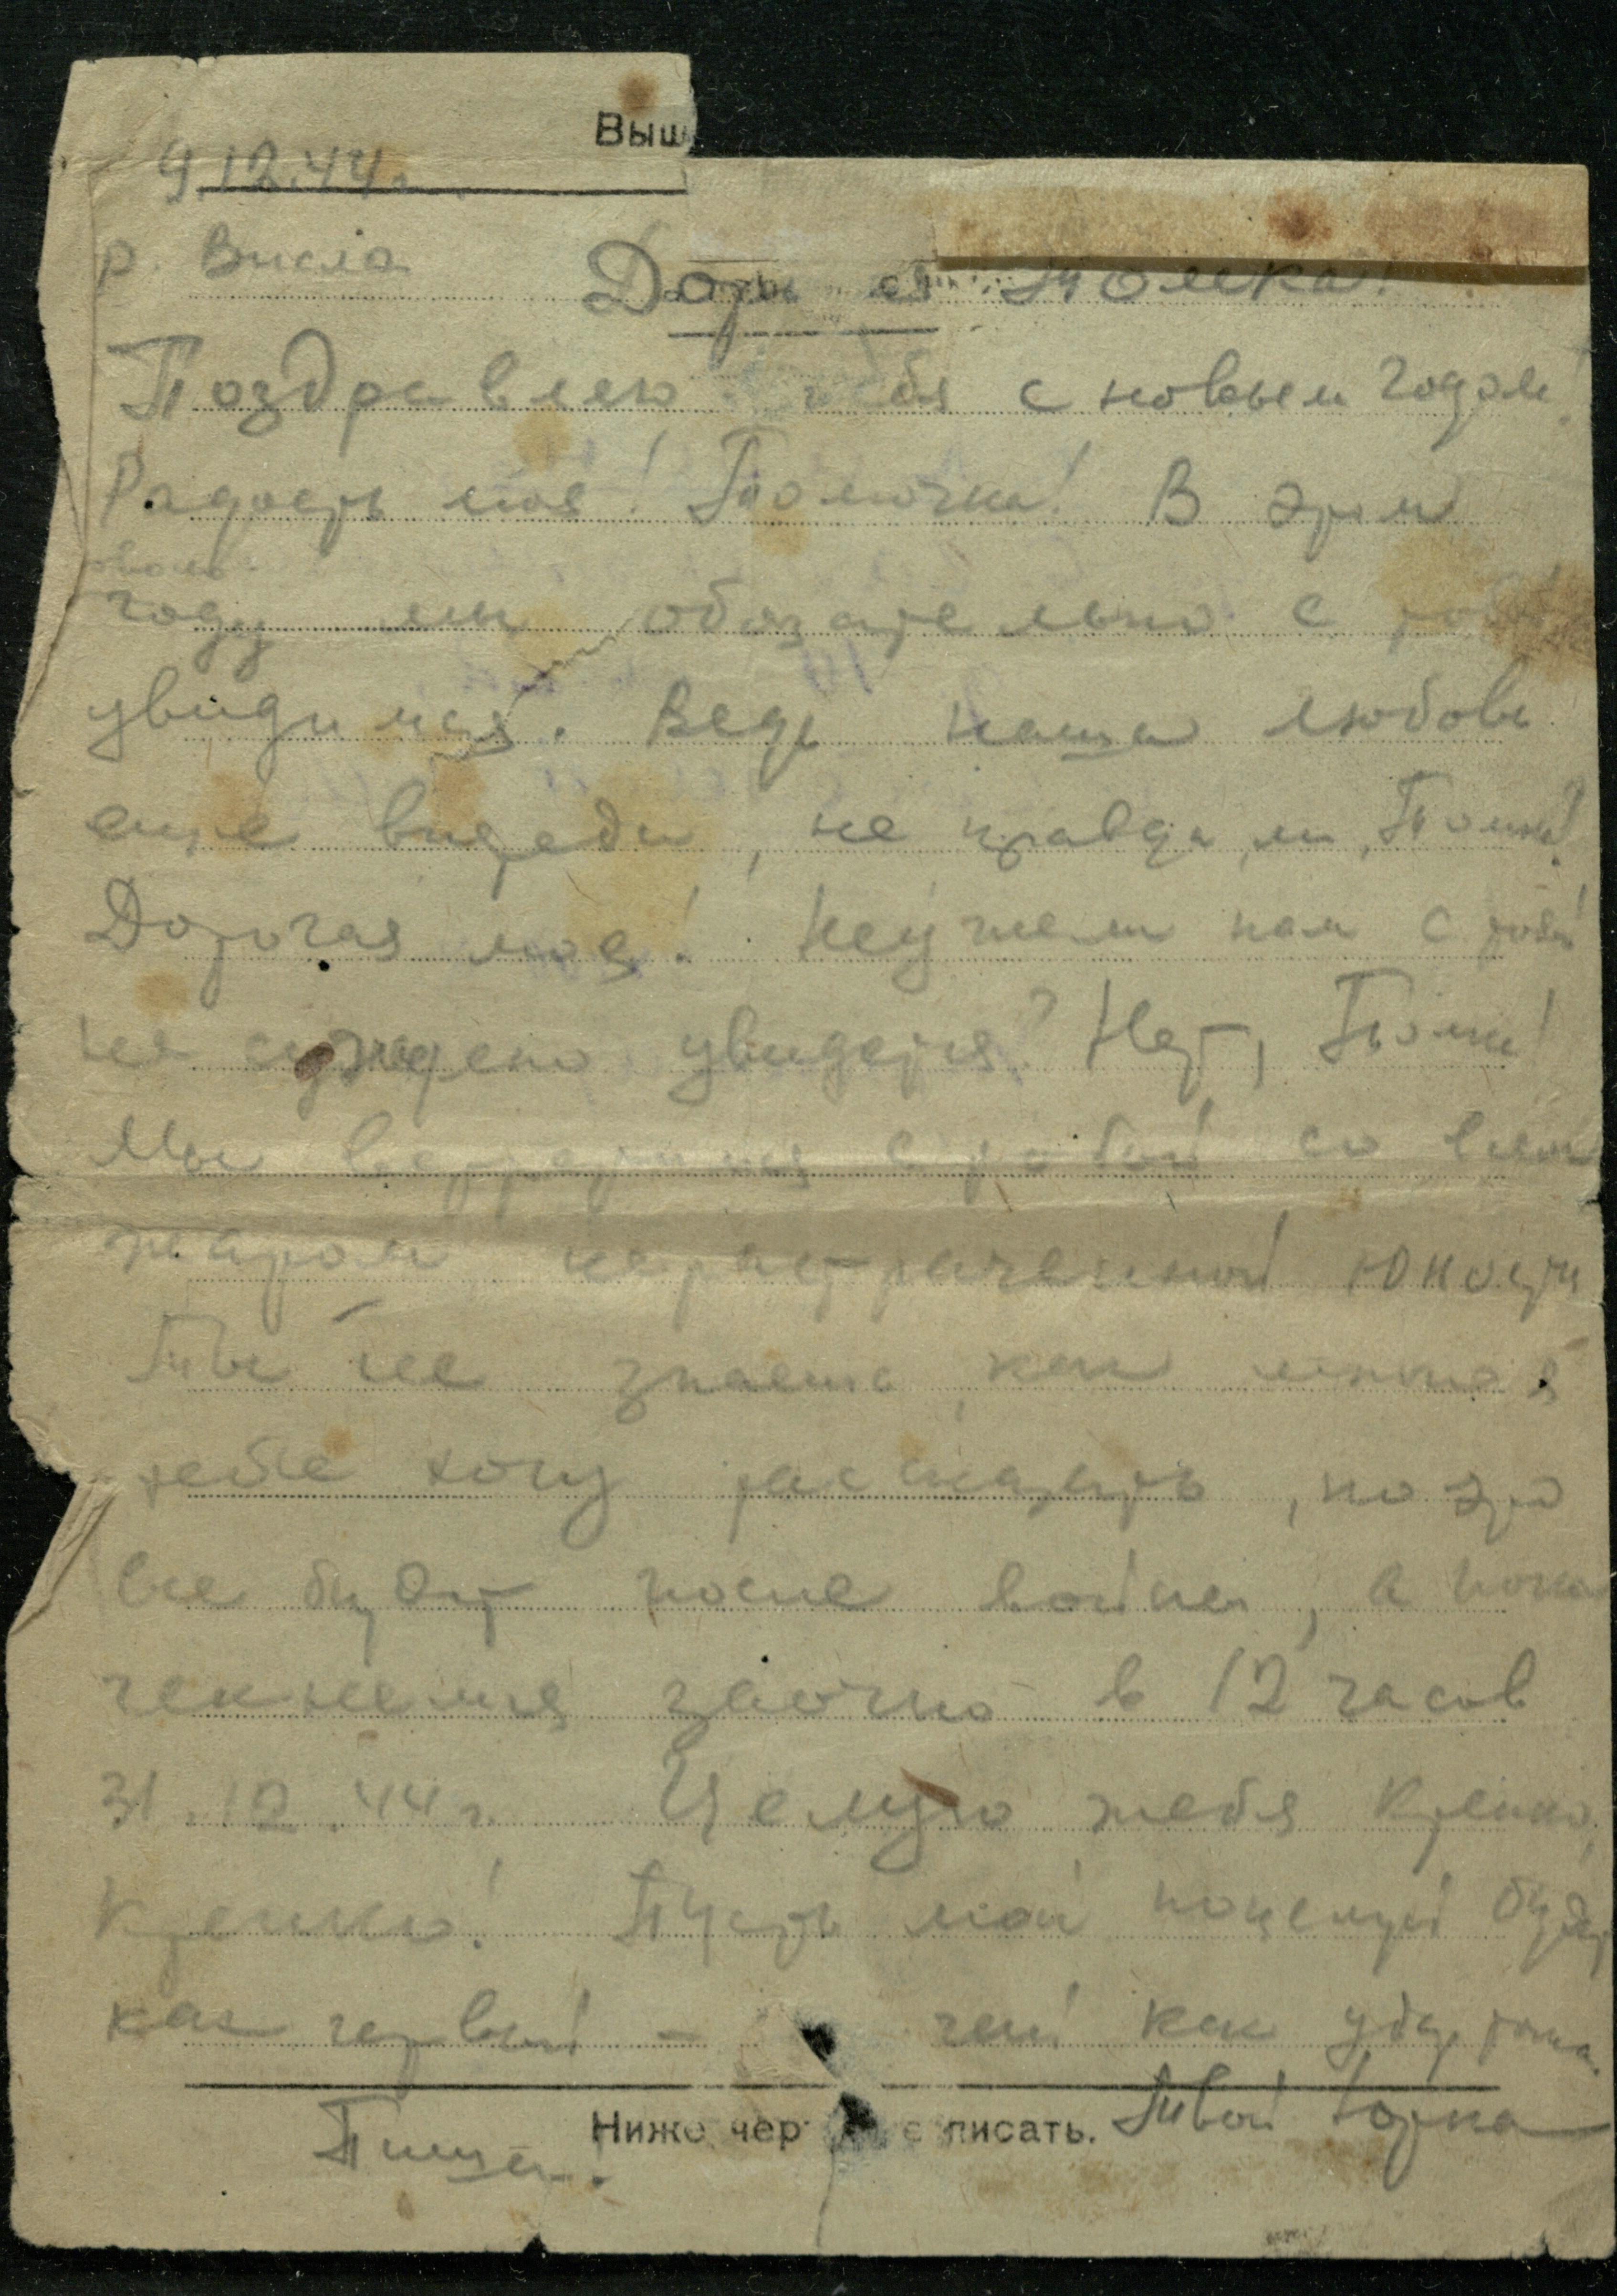 Выш
9.12.44 г.
р. Висла Дорогая Томка!
Поздравляю тебя с новым годом!
Радость моя! Томочка! В этом
новом
году мы обязательно с тобой
увидимся. Ведь наша любовь
еще впереди, не правда ли, Томка?
Дорогая моя! Неужели нам с тобой
не суждено увидется? Нет, Томка!
Мы встретимся с тобой со всем
жаром нерастраченной юности
Ты не знаешь, как много я
тебе хочу рассказать, но это
все будет после войны, а пока
чекнемся заочно в 12 часов
31.12.44 г. Целую тебя крепко,
крепко! Пусть мой поцелуй будет
как первый - как удар тока.
Ниже чер е писать. Твой Борка
Пиши!